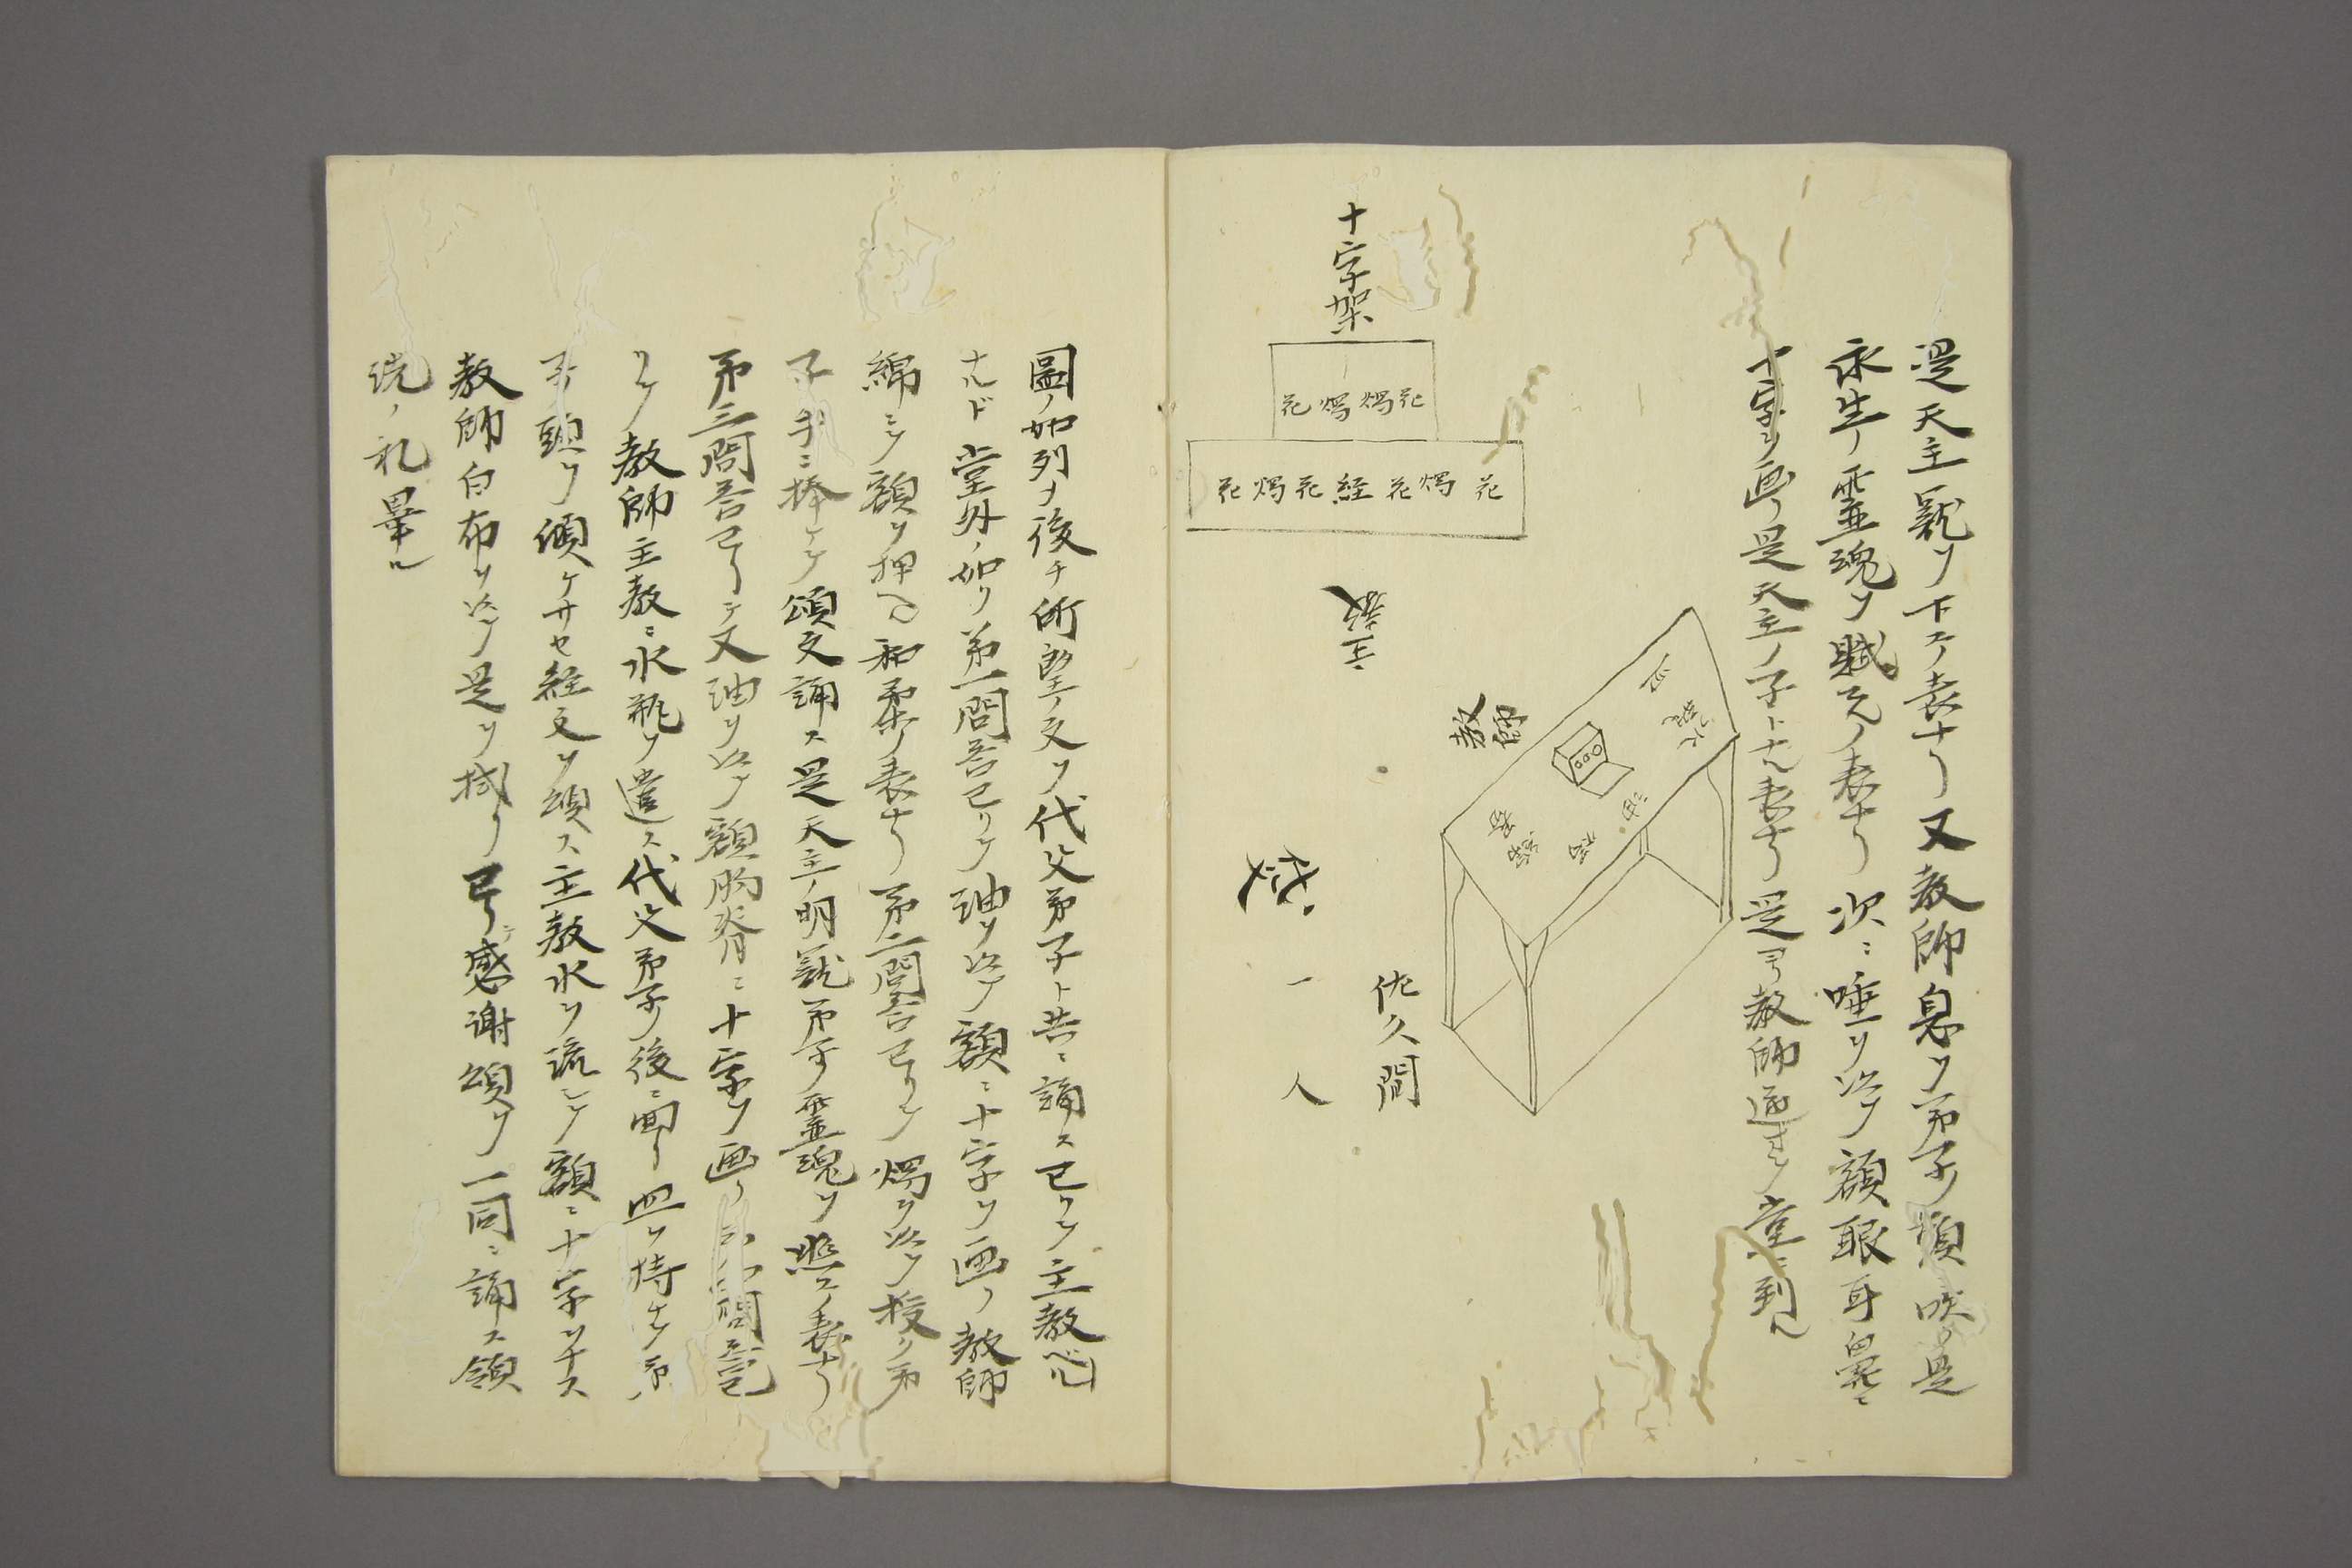 是天主親ヲ下スノ表ナリ又教師息ヲ弟子ノ頭ニ吹ク是
永生ノ霊魂ヲ賦スルノ表ナリ次ニ唾ヲ以テ額眼耳鼻ニ
十字ヲ画ク是天主ノ子トナル表ナリ是ヨリ教師連レテ堂ニ到ル
十字架
花燭燭花
花燭花経花燭花
主教
教師
皿
油
代父
佐久間
一人
圖ノ如列ナ後チ所望ノ文ヲ代父弟子ト共ニ誦ス已リテ主教
ナルド堂外ノ如ク第一問答已リテ油ヲ以テ額ニ十字ヲ画ク教師
綿ニテ額ヲ押ヘ和柔ノ表ナリ第二問答已リテ燭ヲ以テ授ク弟
子手ニ捧ケテ頌文誦ス是天主ノ明 弟子ノ霊魂ヲ照スノ表ナリ
第三問答已リテ又油ヲ以テ額胸脊ニ十字ヲ画ク 問答已
リテ教師主教ニ水瓶ヲ遣ス代父弟子ノ後ニ回リ皿ヲ持ナ弟
子ノ頭ヲ傾ケサセ経文ヲ頌ス主教水ヲ流シテ額ニ十字ヲナス
教師白布ヲ以テ是ヲ拭ク已リテ感謝頌ヲ一同ニ誦ス領
洗ノ礼畢ル